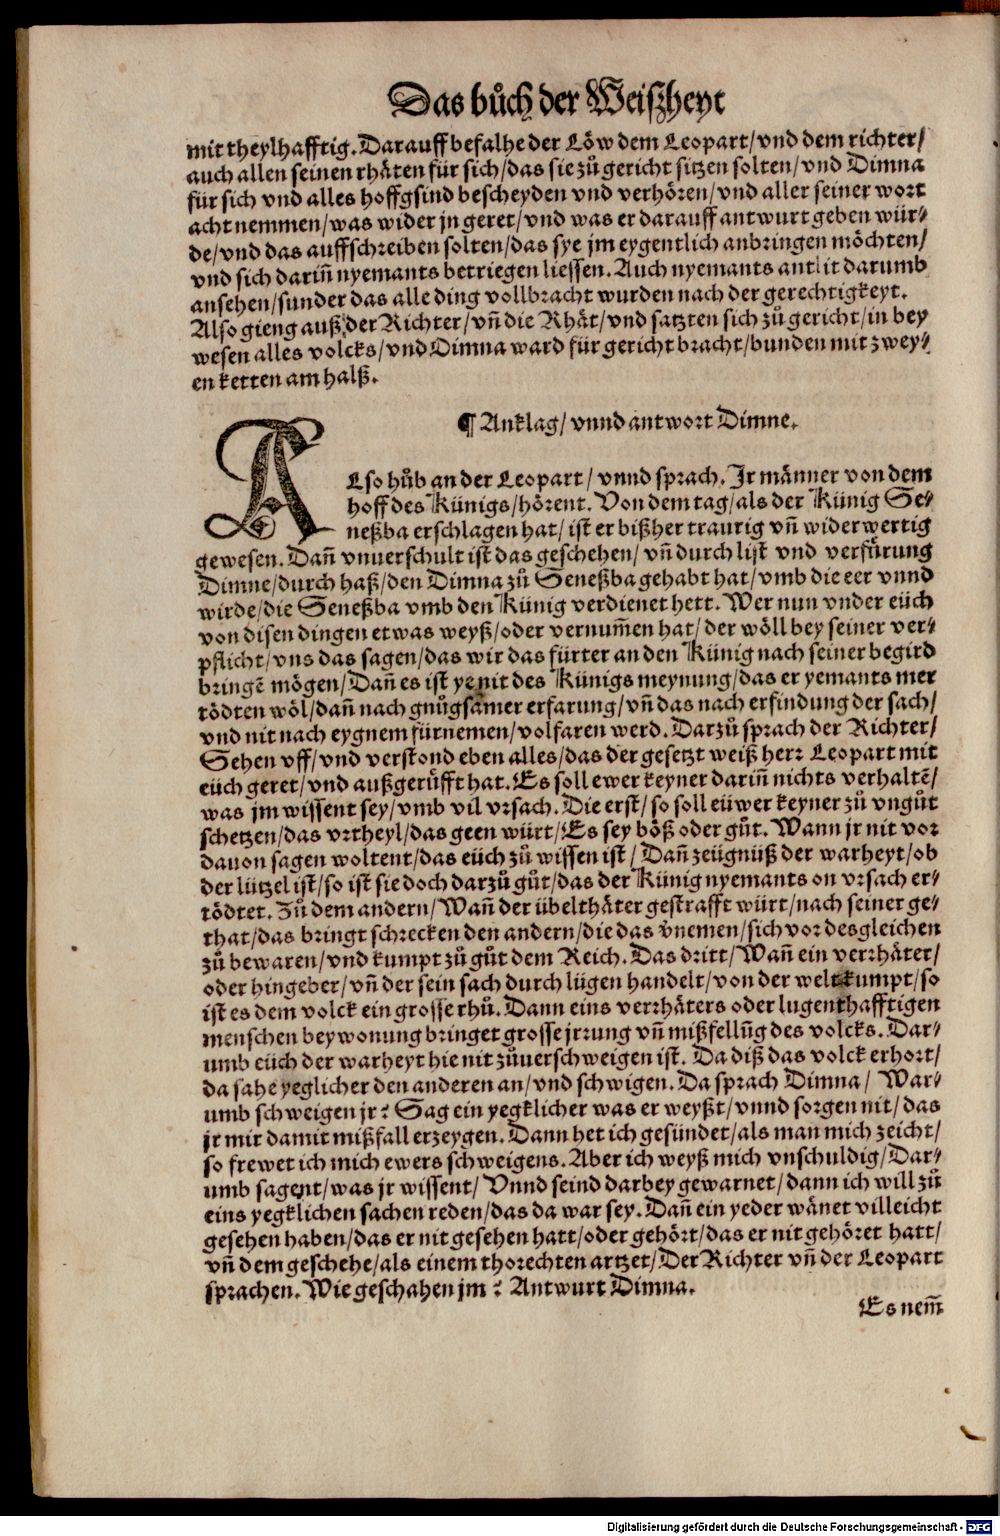 Das bůch der Weißheyt
mit theylhafftig. Darauff befalhe der Löw dem Leopart/ vnd dem richter/
auch allen seinen rhäten für sich/ das sie zů gericht sitzen solten/ vnd Dimna
für sich vnd alles hoffgsind bescheyden vnd verhören/ vnd aller seiner wort
acht nemmen/ was wider jn geret/ vnd was er darauff antwurt geben wür⸗
de/ vnd das auffschreiben solten/ das sye jm eygentlich anbringen möchten/
vnd sich dariñ nyemants betriegen liessen. Auch nyemants antlit darumb
ansehen/ sunder das alle ding vollbracht wurden nach der gerechtigkeyt.
Also gieng auß der Richter/ vñ die Rhät/ vnd satzten sich zů gericht/ in bey
wesen alles volcks/ vnd Dimna ward für gericht bracht/ bunden mit zwey⸗
en ketten am halß.
¶ Anklag/ vnnd antwort Dimne.
ALso hůb an der Leopart/ vnnd sprach. Jr männer von dem
hoff des Künigs/ hörent. Von dem tag/ als der Künig Se⸗
neßba erschlagen hat/ ist er bißher traurig vñ widerwertig
gewesen. Dañ vnuerschult ist das geschehen/ vñ durch list vnd verfürung
Dimne/ durch haß/ den Dimna zů Seneßba gehabt hat/ vmb die eer vnnd
wirde/ die Seneßba vmb den Künig verdienet hett. Wer nun vnder eüch
von disen dingen etwas weyß/ oder vernum̃en hat/ der wöll bey seiner ver⸗
pflicht/ vns das sagen/ das wir das fürter an den Künig nach seiner begird
bringẽ mögen/ Dañ es ist ye nit des Künigs meynung/ das er yemants mer
tödten wöl/ dañ nach gnůgsamer erfarung/ vñ das nach erfindung der sach/
vnd nit nach eygnem fürnemen/ volfaren werd. Darzů sprach der Richter/
Sehen vff/ vnd verstond eben alles/ das der gesetzt weiß herr Leopart mit
eüch geret/ vnd außgerůfft hat. Es soll ewer keyner dariñ nichts verhaltẽ/
was jm wissent sey/ vmb vil vrsach. Die erst/ so soll eüwer keyner zů vngůt
schetzen/ das vrtheyl/ das geen würt/ Es sey böß oder gůt. Wann jr nit vor
dauon sagen woltent/ das eüch zů wissen ist/ Dañ zeügnüß der warheyt/ ob
der lützel ist/ so ist sie doch darzů gůt/ das der Künig nyemants on vrsach er⸗
tödtet. Zů dem andern/ Wañ der übelthäter gestrafft würt/ nach seiner ge⸗
that/ das bringt schrecken den andern/ die das vernemen/ sich vor desgleichen
zů bewaren/ vnd kumpt zů gůt dem Reich. Das dritt/ Wañ ein verrhäter/
oder hingeber/ vñ der sein sach durch lügen handelt/ von der welt kumpt/ so
ist es dem volck ein grosse rhů. Dann eins verrhäters oder lugenthafftigen
menschen beywonung bringet grosse jrrung vñ mißfellũg des volcks. Dar⸗
umb eüch der warheyt hie nit zůuerschweigen ist. Da diß das volck erhort/
da sahe yeglicher den anderen an/ vnd schwigen. Da sprach Dimna/ War⸗
umb schweigen jr? Sag ein yegklicher was er weyßt/ vnnd sorgen nit/ das
jr mir damit mißfall erzeygen. Dann het ich gesündet/ als man mich zeicht/
so frewet ich mich ewers schweigens. Aber ich weyß mich vnschuldig/ Dar⸗
umb sagent/ was jr wissent/ Vnnd seind darbey gewarnet/ dann ich will zů
eins yegklichen sachen reden/ das da war sey. Dañ ein yeder wänet villeicht
gesehen haben/ das er nit gesehen hatt/ oder gehört/ das er nit gehöret hatt/
vñ dem geschehe/ als einem thorechten artzet/ Der Richter vñ der Leopart
sprachen. Wie geschahen jm? Antwurt Dimna.
Es nem̃
Digitalisierung gefördert durch die Deutsche Forschungsgemeinschaft - DFG